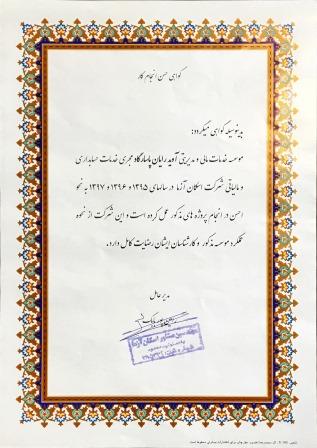 گواهی حسن انجام کار
بدینوسیله گواهی میگردد:
موسسه خدمات مالی و مدیریتی آوید رایان پاسارگاد مجری خدمات حسابداری
و مالیاتی شرکت اسکان آزما در سالهای ۱۳۹۵ و ۱۳۹۶ و ۱۳۹۷ به نحو
احسن در انجام پروژه های مذکور عمل کرده است و این شرکت از نحوه
عملکرد موسسه مذکور و کارشناسان ایشان رضایت کامل دارد.
مدیر عامل
مهندسین مشاور اسکان آزما